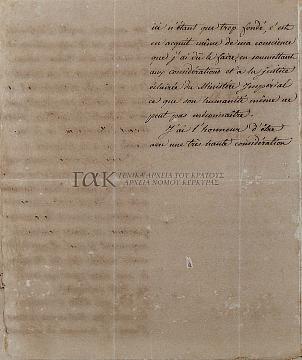 ici n'étant que trop fondé c'est
en acquit même de ma conscience
que j'ai dû le faire, en soumettant
aux considérations et à la justice
éclairée du Ministère Impérial
ce que son humanité même ne
peut pas méconnaître.
J'ai l'honneur d'être
avec une très haute considération
ΓΑΚ ΓΕΝΙΚΑ ΑΡΧΕΙΑ ΤΟΥ ΚΡΑΤΟΥΣ
ΑΡΧΕΙΑ ΝΟΜΟΥ ΚΕΡΚΥΡΑΣ